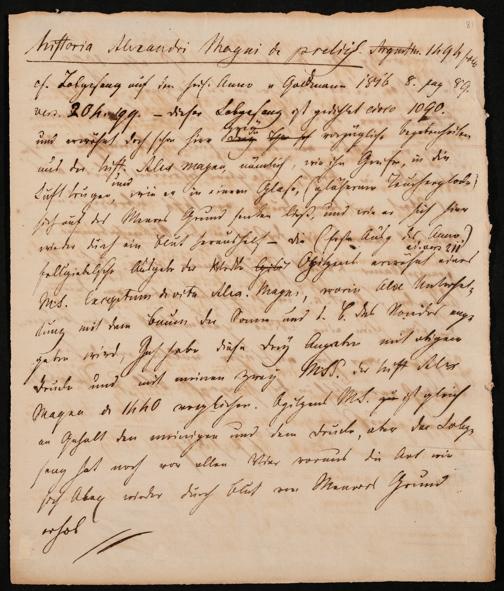 81
Historia Alexandri Magni de preliis. Argentin. 1494
cf. Lobgesang auf den heil. Anno v Goldmann 1816 8. pag 89.
vers. 204-299. – dieser Lobgesang ist gedichtet circa 1090
und erwähnt doch schon hier vorzügliche begebenheiten
aus der hist. Alex magni nämlich, wie ihn Greife, in die
Luft trugen, und wie er in einem Glase, (gläserne Taucherglocke)
sich auf des Meeres Grund senken ließ, und wie er sich hier
wieder durch ein blut heraushelf – die (siehe Ausg des Anno)
ad vers 211
Ausgabe des Opitzens erwähnt eines
MS. Excerptum de vita Alex. Magni, worin alse Unterhal-
tung mit dem baum der Sonne und d. b. des Mondes ange-
geben wird, Ich habe diese drey Angaben mit obigem
Drucke und mit meinen zwey MSS. der hist Alex
Magni de 1440 verglichen. Opitzens MS. ist gleich
an Gehalt dem meinigen und dem Drucke, aber der Lobge-
sang hat noch vor allen Vier voraus die Art wie
sich Alex wieder durch blut von Meeres Grund
erhob